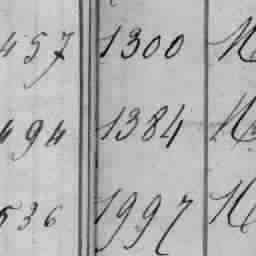 457 1300
494 1384
536 1997